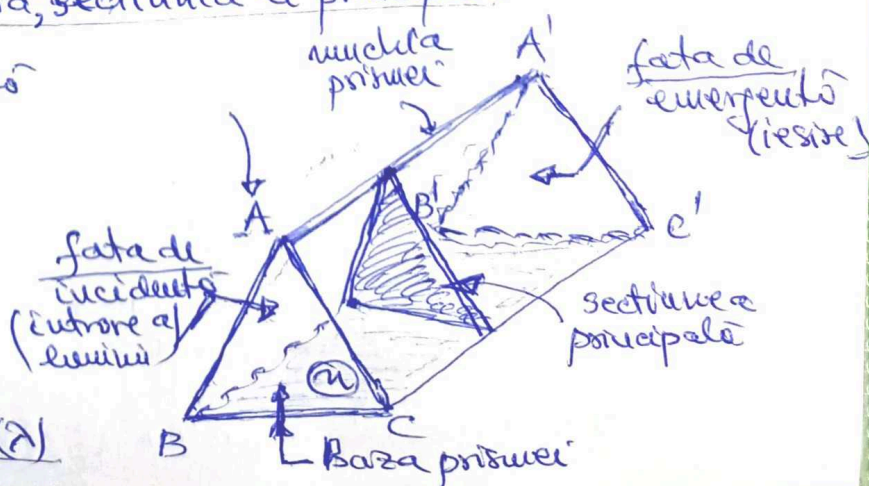 secțiunea a
muchia
prismei
A'
fata de
emergență
(ieșire)
A
B'
C'
fata de
incidență
(intrare a
luminii
secțiunea
principală
n
B
C
(λ)
Baza prismei